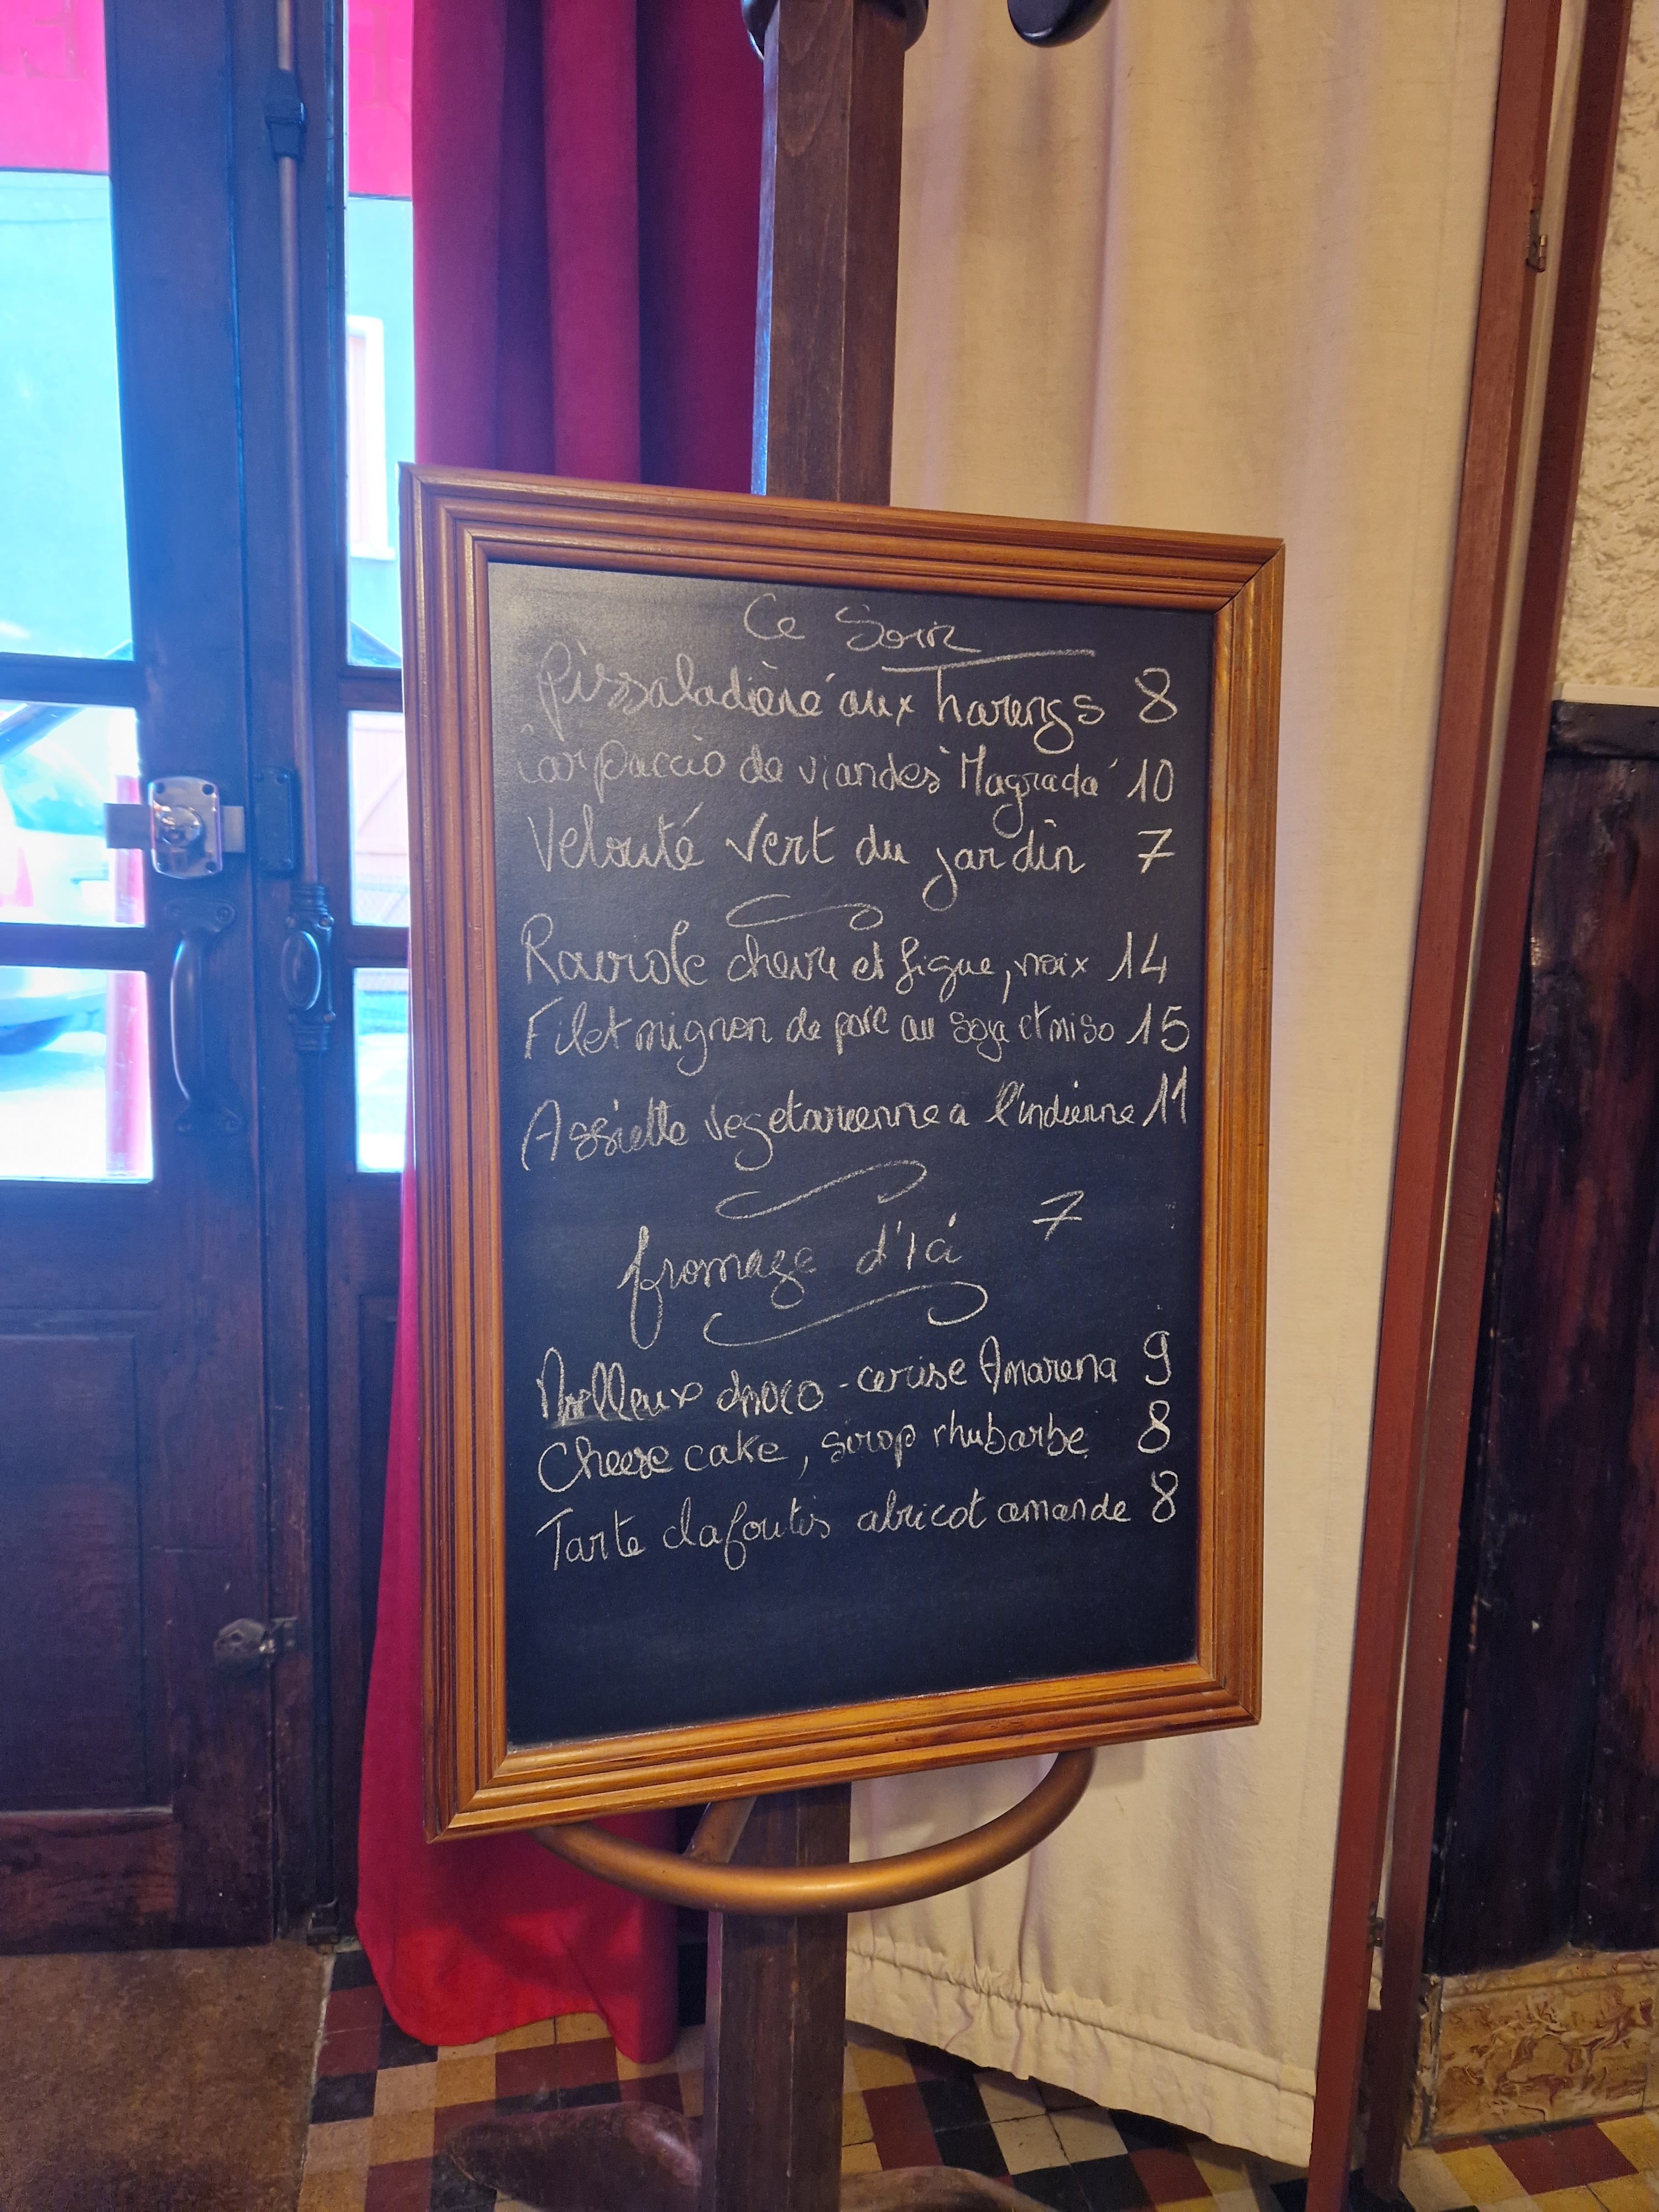 Ce Soir
Pissaladière aux harengs 8
Carpaccio de viandes "Magrada" 10
Velouté vert du jardin 7
Raviole chèvre et figue, noix 14
Filet mignon de porc au soja et miso 15
Assiette vegetarienne a l'indienne 11
fromage d'ici 7
Moelleux choco - cerise Amarena 9
Cheese cake, sirop rhubarbe 8
Tarte clafoutis abricot amande 8